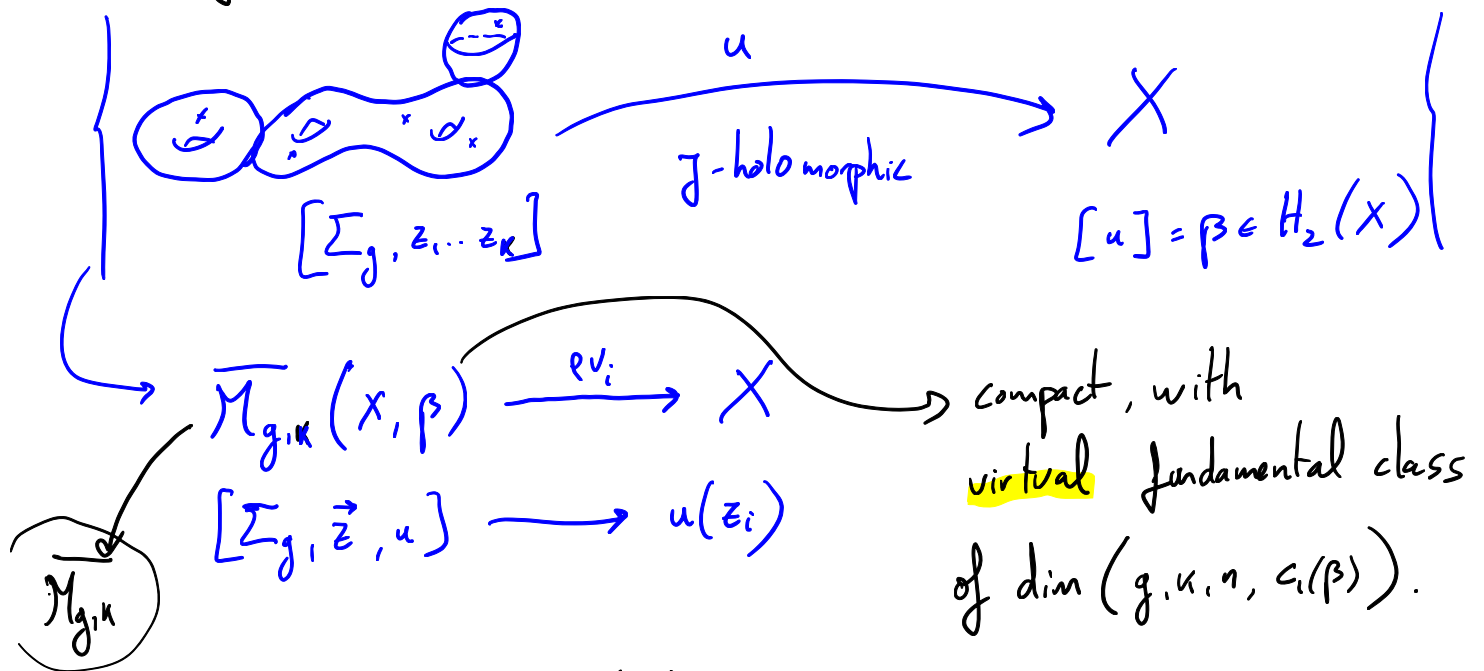 u
X
J-holomorphic
[Σ_g, z_1 ... z_k]
[u] = β ∈ H_2(X)
\overline{M}_{g,k}(X, β) ev_i X
compact, with
virtual fundamental class
[Σ_g, \vec{z}, u] u(z_i)
of dim (g, k, n, c_1(β)).
\overline{M}_{g,k}